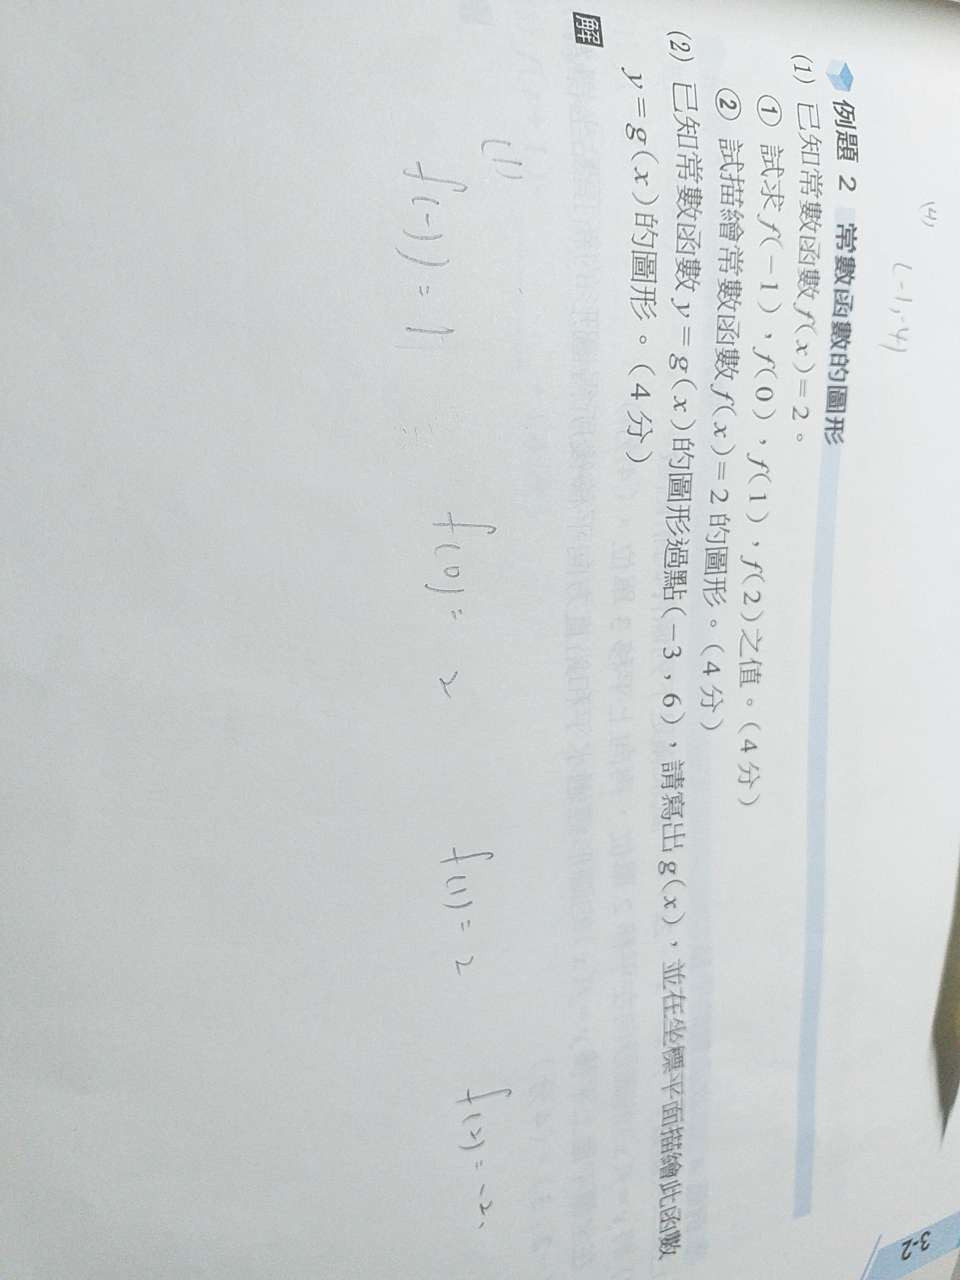 (4)
(-1,-4)
例題 2 常數函數的圖形
(1) 已知常數函數 f(x)=2。
① 試求 f(-1)，f(0)，f(1)，f(2)之值。(4分)
② 試描繪常數函數 f(x)=2 的圖形。(4分)
(2) 已知常數函數 y=g(x)的圖形過點(-3,6)，請寫出 g(x)，並在坐標平面描繪此函數
y=g(x)的圖形。(4分)
解
(1)
f(-1)=1 f(0)= 2 f(1)= 2 f(2)=-2.
3-2